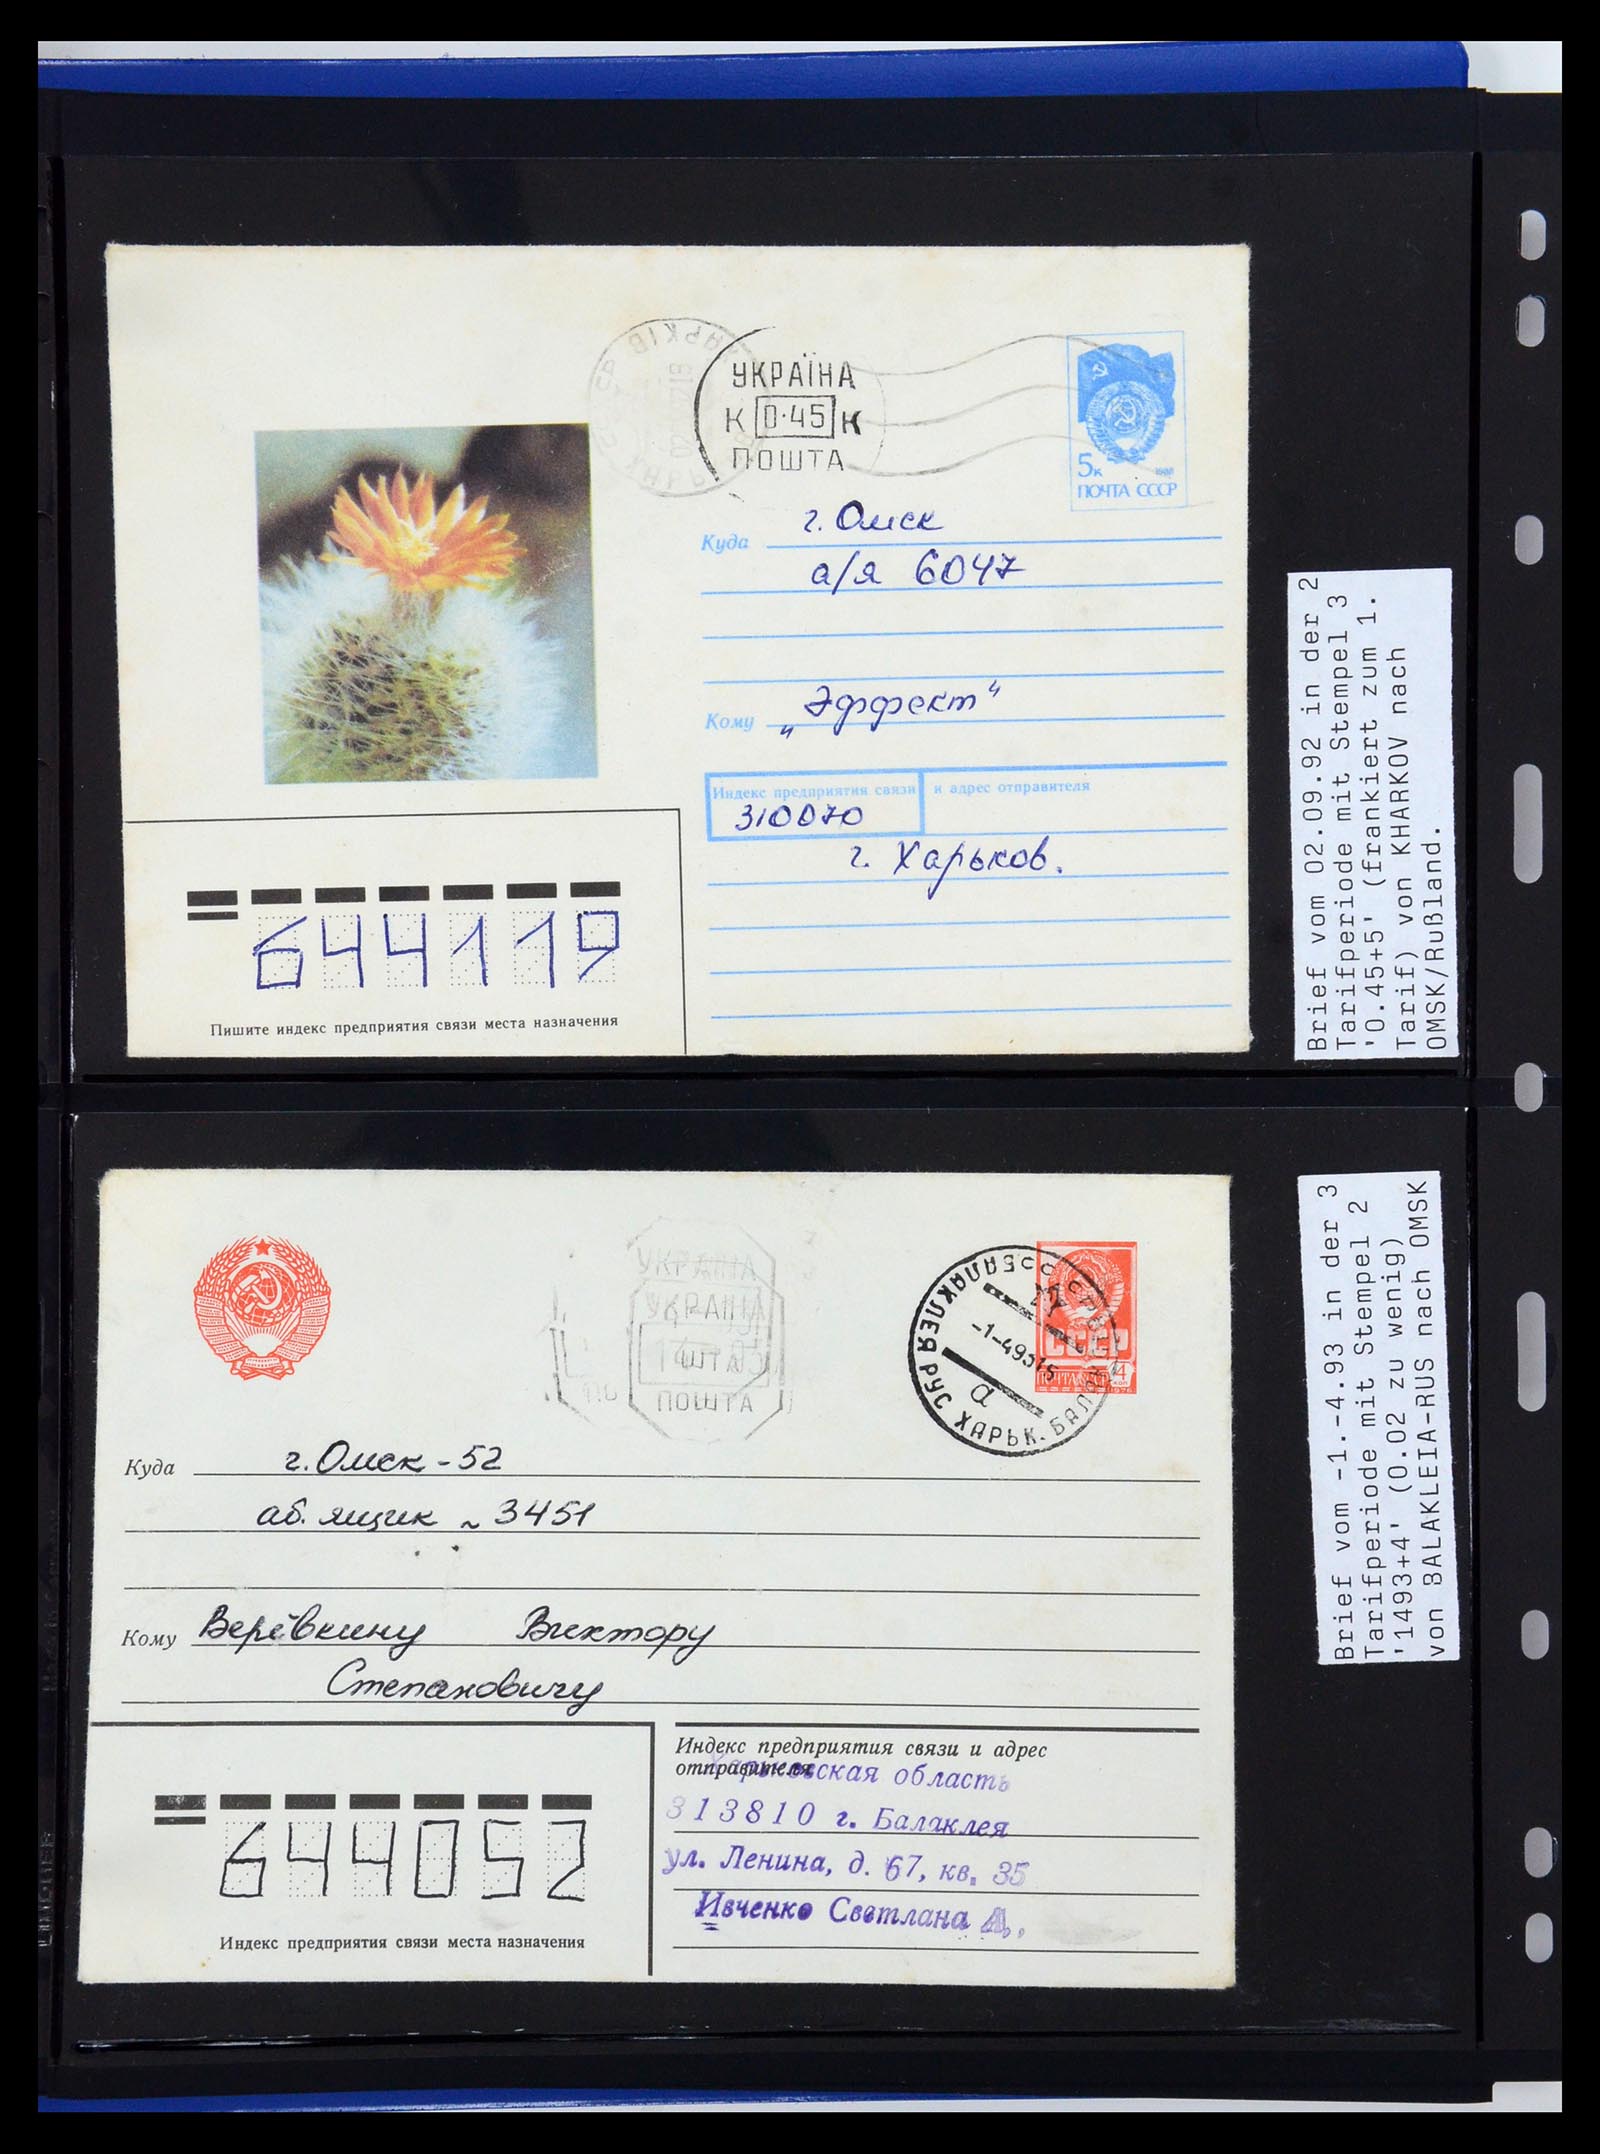 ХАРКІВ
УКРАЇНА
К 0·45 К
ПОШТА
5к
1988
ПОЧТА СССР
Куда г. Омск
а/я 6047
Кому „Эффект“
Индекс предприятия связи и адрес отправителя
310070
г. Харьков.
644119
Пишите индекс предприятия связи места назначения
Brief vom 02.09.92 in der 2
Tarifperiode mit Stempel 3
'0.45+5' (frankiert zum 1.
Tarif) von KHARKOV nach
OMSK/Rußland.
УКРАІНА
УКРАІНА
ПОШТА
БАЛАКЛЕЯ РУС ХАРЬК.
-1-4 93 15
а
СССР
ПОЧТА
4 коп
1976
Куда г. Омск-52
аб. ящик ~ 3451
Кому Верёвкину Виктору
Степановичу
Индекс предприятия связи и адрес
отправителя
Харьковская область
313810 г. Балаклея
ул. Ленина, д. 67, кв. 35
Ивченко Светлана Д.
644052
Индекс предприятия связи места назначения
Brief vom -1.-4.93 in der 3
Tarifperiode mit Stempel 2
'1493+4' (0.02 zu wenig)
von BALAKLEIA-RUS nach OMSK